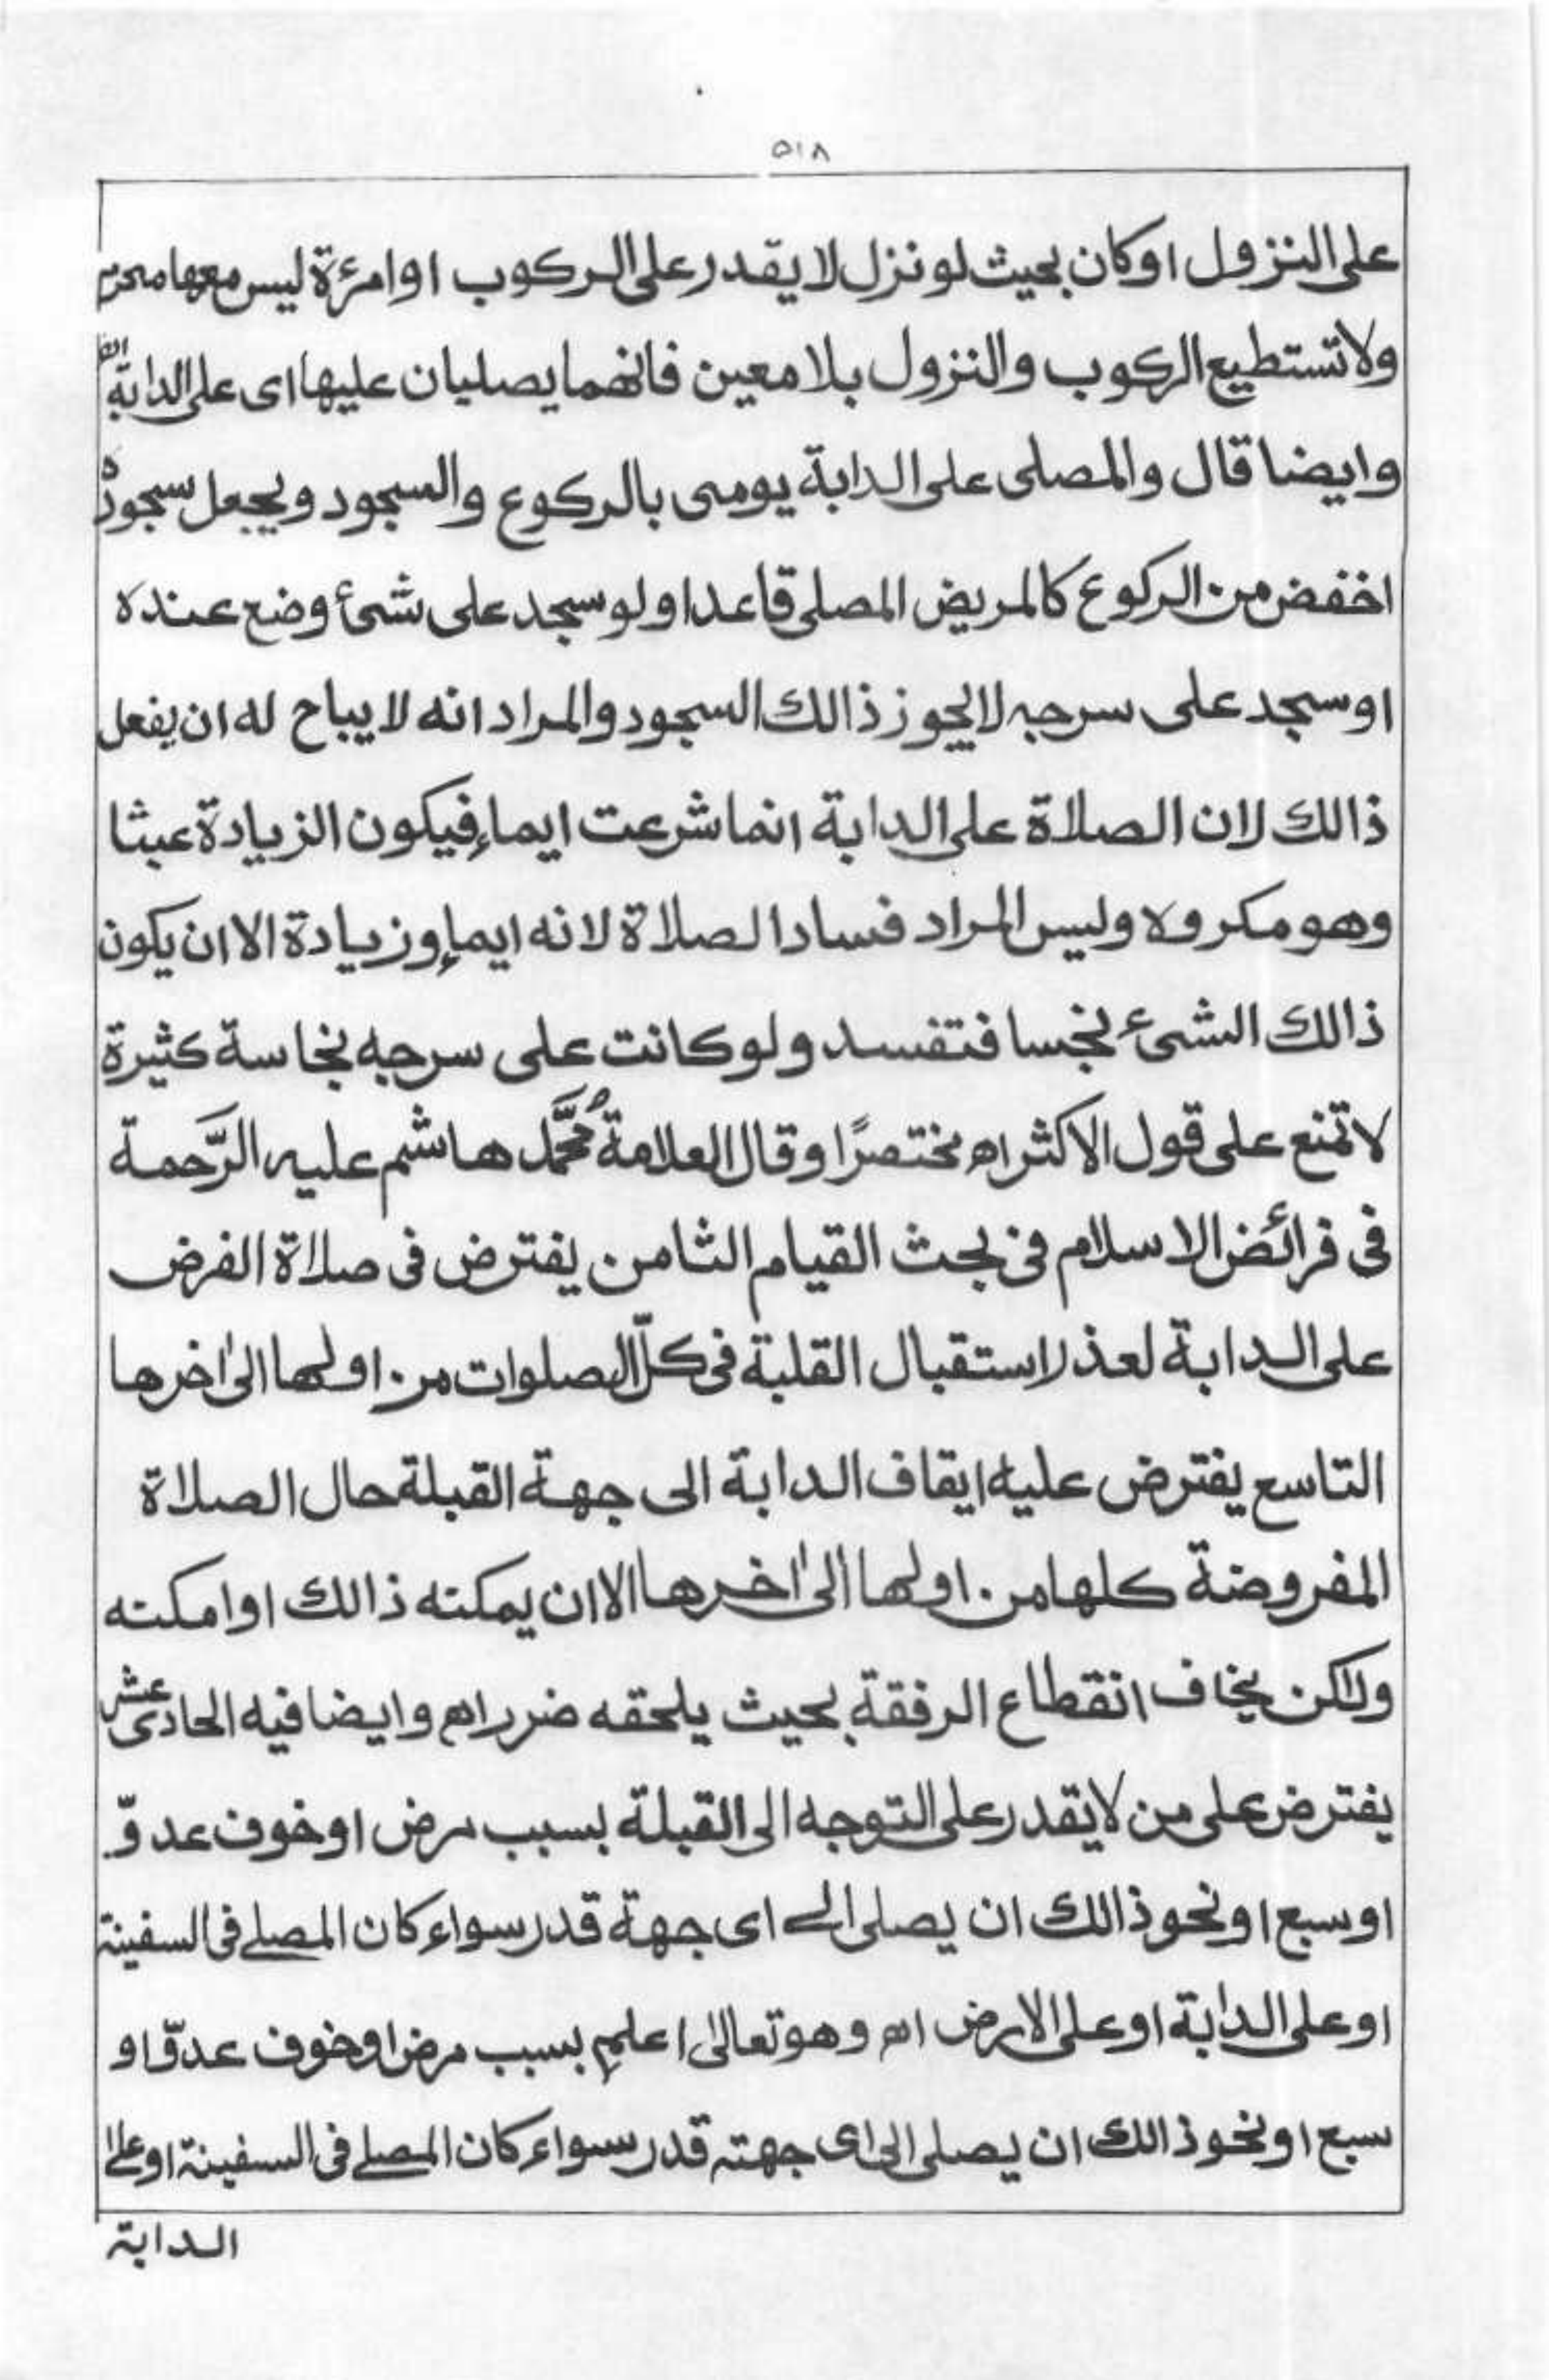 ٥١٨
على النزول او كان بحيث لو نزل لا يقدر على الركوب او امرءة ليس معها محرم
ولا تستطيع الركوب والنزول بلا معين فانهما يصليان عليها اى على الدابة اھ
وايضا قال والمصلى على الدابة يومى بالركوع والسجود ويجعل سجوده
اخفض من الركوع كالمريض المصلى قاعدا ولو سجد على شئ وضع عنده
او سجد على سرجہ لا يجوز ذالك السجود والمراد انه لا يباح له ان يفعل
ذالك لان الصلاة على الدابة انما شرعت ايماء فيكون الزيادة عبثا
وهو مكروه وليس المراد فساد الصلاة لانه ايماء وزيادة الا ان يكون
ذالك الشئ نجسا فتفسد ولو كانت على سرجه نجاسة كثيرة
لا تمنع على قول الاكثر اھ مختصرًا وقال العلامة محمَّد هاشم عليہ الرَّحمة
فى فرائض الاسلام فى بحث القيام الثامن يفترض فى صلاة الفرض
على الدابة لعذر استقبال القلبة فى كلّ الصلوات من اولها الىٰ اخرها
التاسع يفترض عليه ايقاف الدابة الى جهة القبلة حال الصلاة
المفروضة كلها من اولها الىٰ اخرها الا ان يمكنه ذالك او امكنه
ولٰكن يخاف انقطاع الرفقة بحيث يلحقه ضرر اھ وايضا فيه الحادى عشر
يفترض على من لا يقدر على التوجه الى القبلة بسبب مرض او خوف عدوّ
او سبع او نحو ذالك ان يصلى الے اى جهة قدر سواء كان المصلے فى السفينة
او على الدابة او على الارض اھ وهو تعالىٰ اعلم بسبب مرض او خوف عدوّ او
سبع او نحو ذالك ان يصلى الى اى جهتہ قدر سواء كان المصلے فى السفينة او على
الدابة